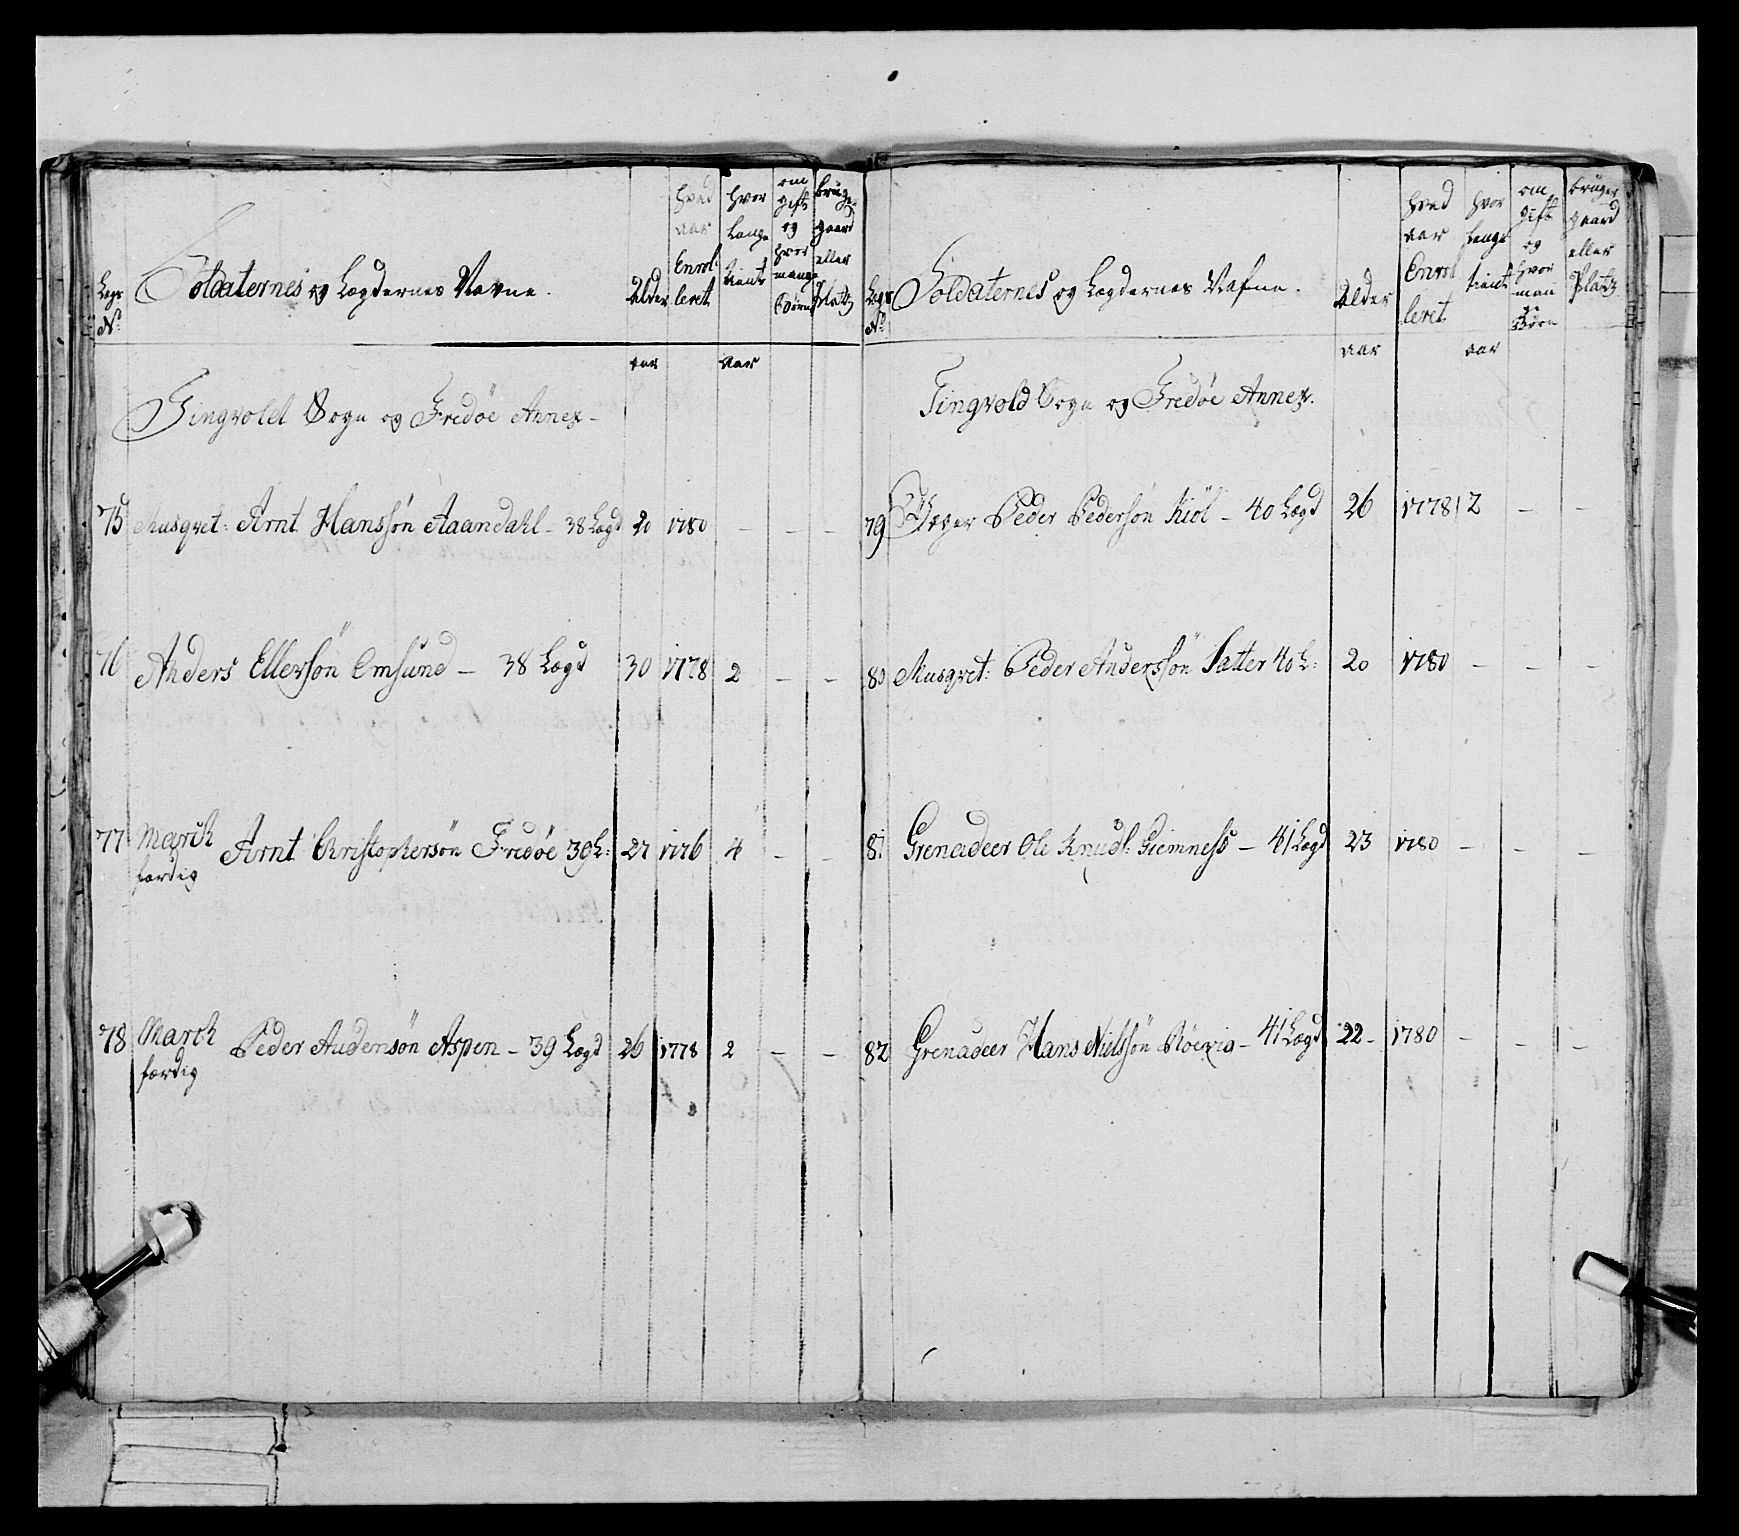 Legs No
Soldaternes og Lægdernes Navne.
Alder
hvad aar Enrolleret
hvor Længe tient
om gift og hvor mange Børn
bruger gaard eller Platz
aar
aar
Tingvold Sogn og Fredöe Annex –
75 Musqvet: Arnt Hanssön Aaandahl – 38 Lægd 20 1780 – – –
76 Anders Ellersön Omsund – 38 Lægd 30 1778 2 – –
77 March færdig Arnt Christophersön Fredöe 39 L: 27 1776 4 – –
78 March færdig Peder Andersön Aspen – 39 Lægd 26 1778 2 – –
Legs No
Soldaternes og Lægdernes Nafne.
Alder
hvad aar Enrolleret
hvor Længe tient
om gift og hvor mange Börn
bruger gaard eller Platz
aar
aar
Tingvold Sogn og Fredöe Annex.
79 Jæger Peder Pedersön Kiöl – 40 Lægd 26 1778 2 – –
80 Musqvet: Peder Anderssön Satter 40 L: 20 1780 – – –
81 Grenadeer Ole Knuds: Giemness – 41 Lægd 23 1780 – – –
82 Grenadeer Hans Nielssön – 41 Lægd 22 – 1780 – – –